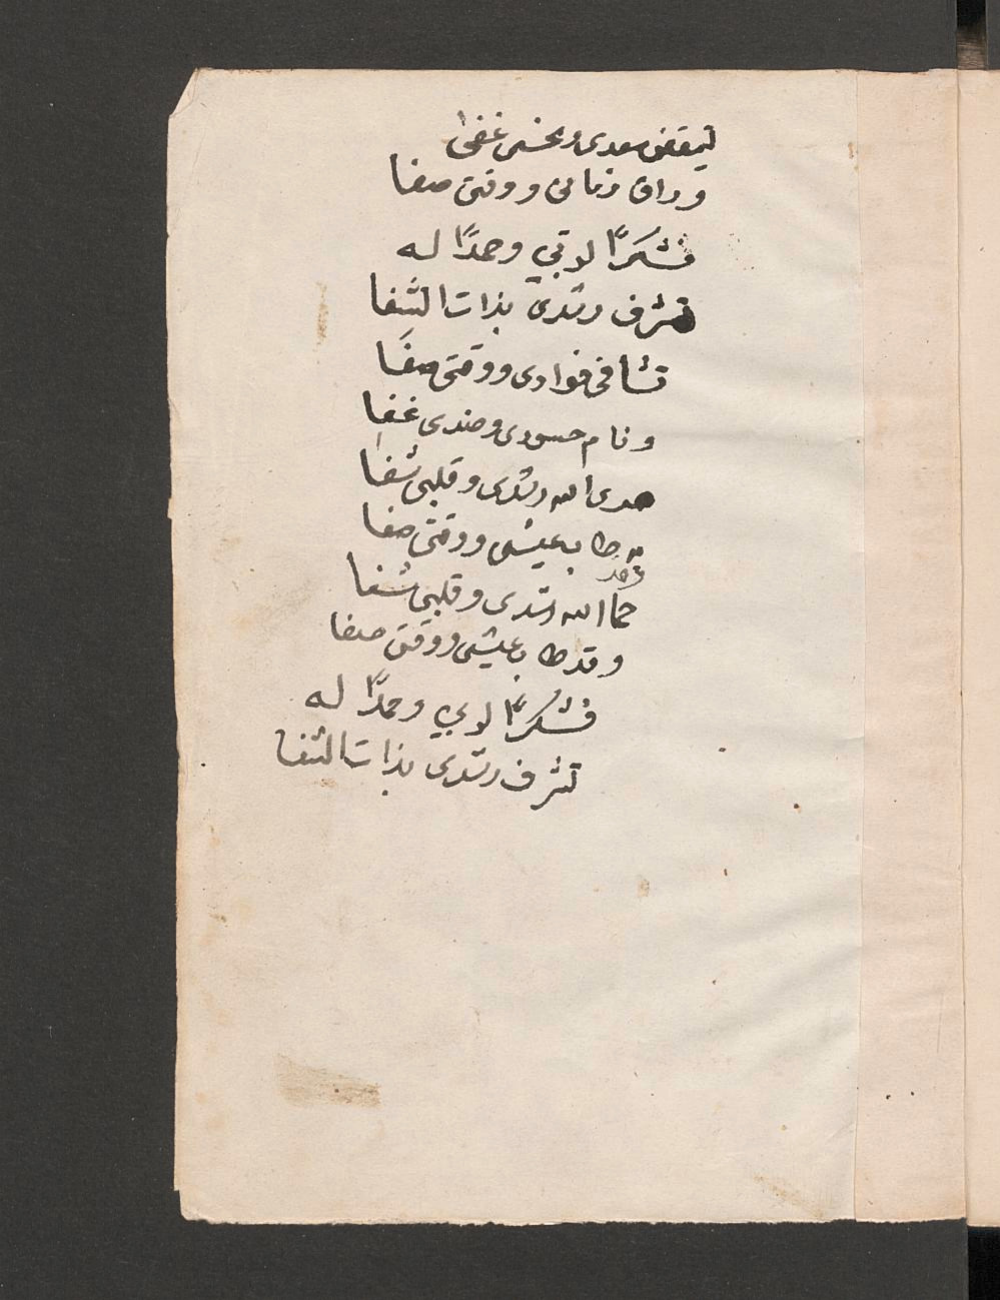 تيقض سعدى ونحسى غفى
وراق زمانى ووقتى صفا
فشكرًا لربي وحمدًا له
تشرف رشدى بذات الشفا
فؤادى ووقتى صفَا
ونام حسودى وضدى غفا
هدى الله رشدى وقلبى شفا
وقد طاب عيشى ووقتى صفا
حما الله رشدى وقلبى شفا
وقد طاب عيشى ووقتى صفا
فشكرًا لربي وحمدًا له
تشرف رشدى بذات الشفا